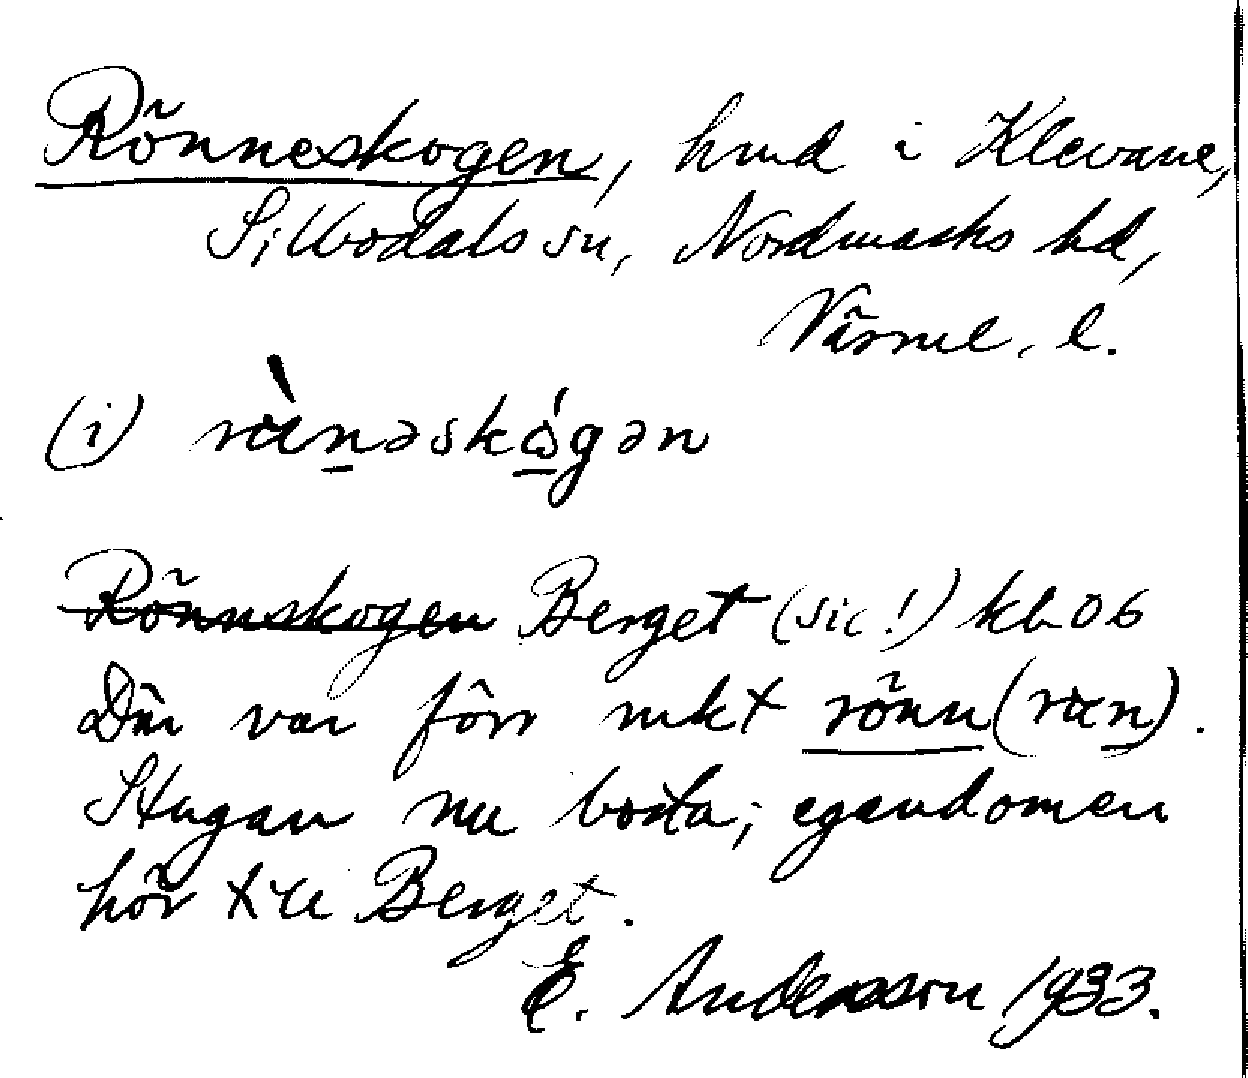 Rönneskogen, hmd i Klevane,
Sillbodals sn, Nordmarks hd,
Värml. l.
(i) rὰṉəskɷ̱́gən
~~Rönnskogen~~ Berget (sic!) kb 06
Där var förr mkt rönn (rὰṉ).
Stugan nu borta; egendomen
hör till Berget.
E. Andersson 1933.